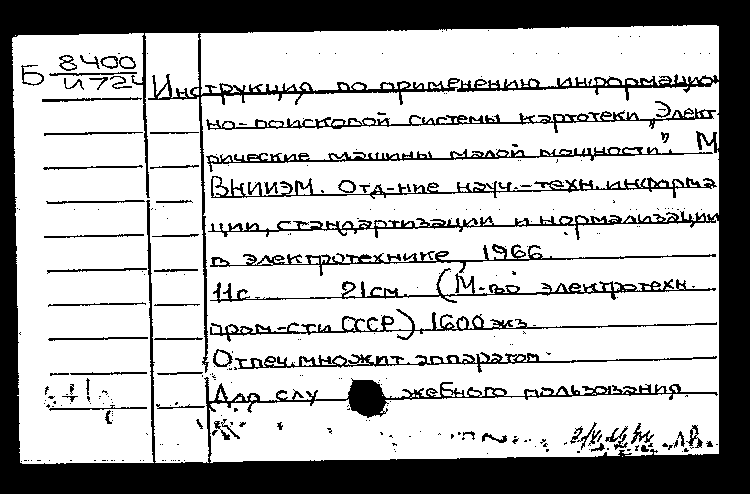 Б 8400
И724
Инструкция по применению информацион
но-поисковой системы картотеки „Элект-
рические машины малой мощности". М
ВНИИЭМ. Отд-ние науч.-техн. информа
ции, стандартизации и нормализации
в электротехнике, 1966.
11с. 21см. (М-во электротехн.
пром-сти СССР). 1600 экз.
Отпеч. множит. аппаратом.
Для служебного пользования